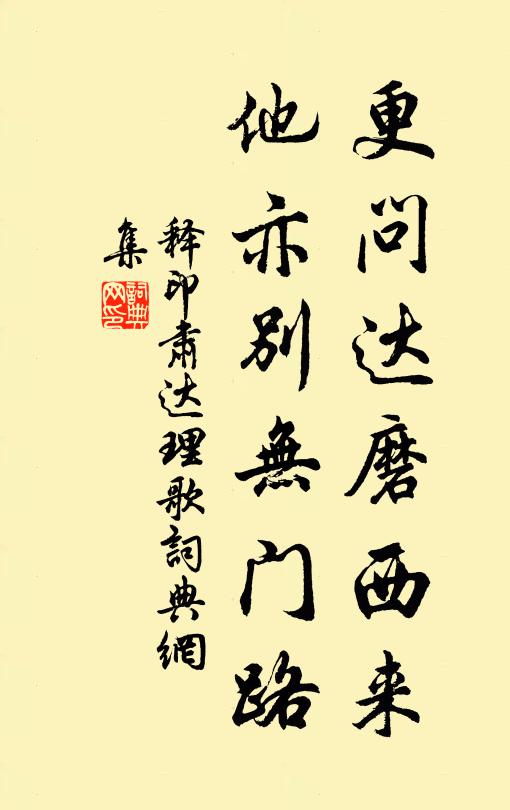 更问达磨西来
他亦别無门路
释印肃达理歌詞典網
集
詞典
网印